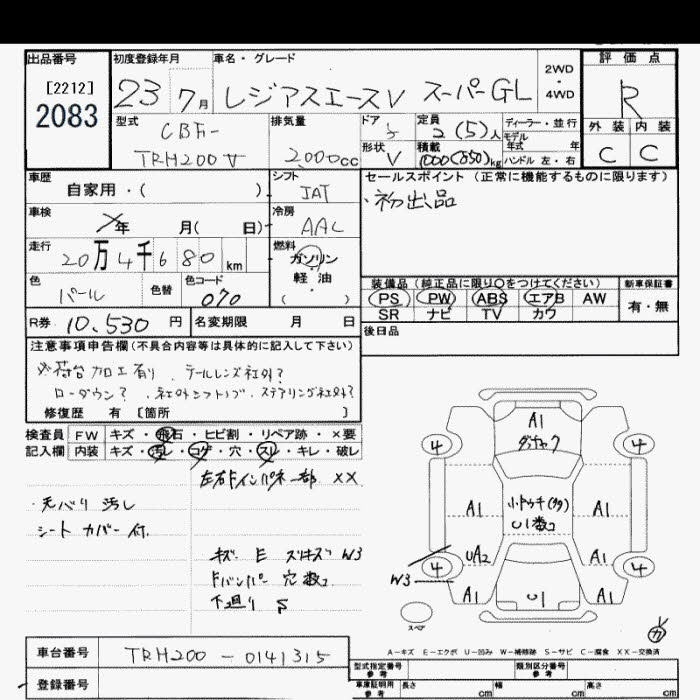 出品番号
[2212]
2083
初度登録年月
23 7月
車名・グレード
レジアスエースV スーパーGL
2WD
・
4WD
評価点
R
外装 内装
C C
型式
CBF-
TRH200V
排気量
2000cc
ドア
5
形状
V
定員
2(5)人
積載
1000(850)kg
ディーラー・並行
モデル年式 年
ハンドル 左・右
車歴
自家用・( )
シフト
IAT
セールスポイント (正常に機能するものに限ります)
・初出品
車検
年 月( 日)
冷房
AAC
走行
20万4千680km
燃料
ガソリン
・
軽油
( )
色
パール
色替
色コード
070
装備品(純正品に限り○をつけてください)
PS PW ABS エアB AW
SR ナビ TV カワ
新車保証書
有・無
R券 10,530円
名変期限 月 日
後日品
注意事項申告欄(不具合内容等は具体的に記入して下さい)
※荷台加工有り テールレンズ社外?
ローダウン? 社外シフトノブ ステアリング社外?
修復歴 有 [箇所 ]
検査員
記入欄
FW キズ・飛石・ヒビ割・リペア跡・×要
内装 キズ・汚レ・コゲ・穴・スレ・キレ・破レ
左右Fインパネ一部 XX
・天バリ 汚レ
シートカバー付
キズ E スリキズ W3
Fバンパー 穴数コ
下廻り S
A1
4
4
A1
A1
小ドゥキ(多タ)
U1数コ
UA2
A1
4
4
W3
A1
U1
A1
スペア
A-キズ E-エクボ U-凹み W-補修跡 S-サビ C-腐食 XX-交換済
車台番号
TRH200-0141315
登録番号
型式指定番号
参考
類別区分番号
参考
車庫証明用
参考
長さ cm
幅 cm
高さ cm